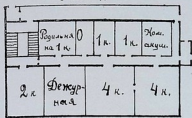 Родильня
на 1 к.
О
1 к.
1 к.
Ком.
акуш.
2 к
Дежур-
ная
4 к.
4 к.